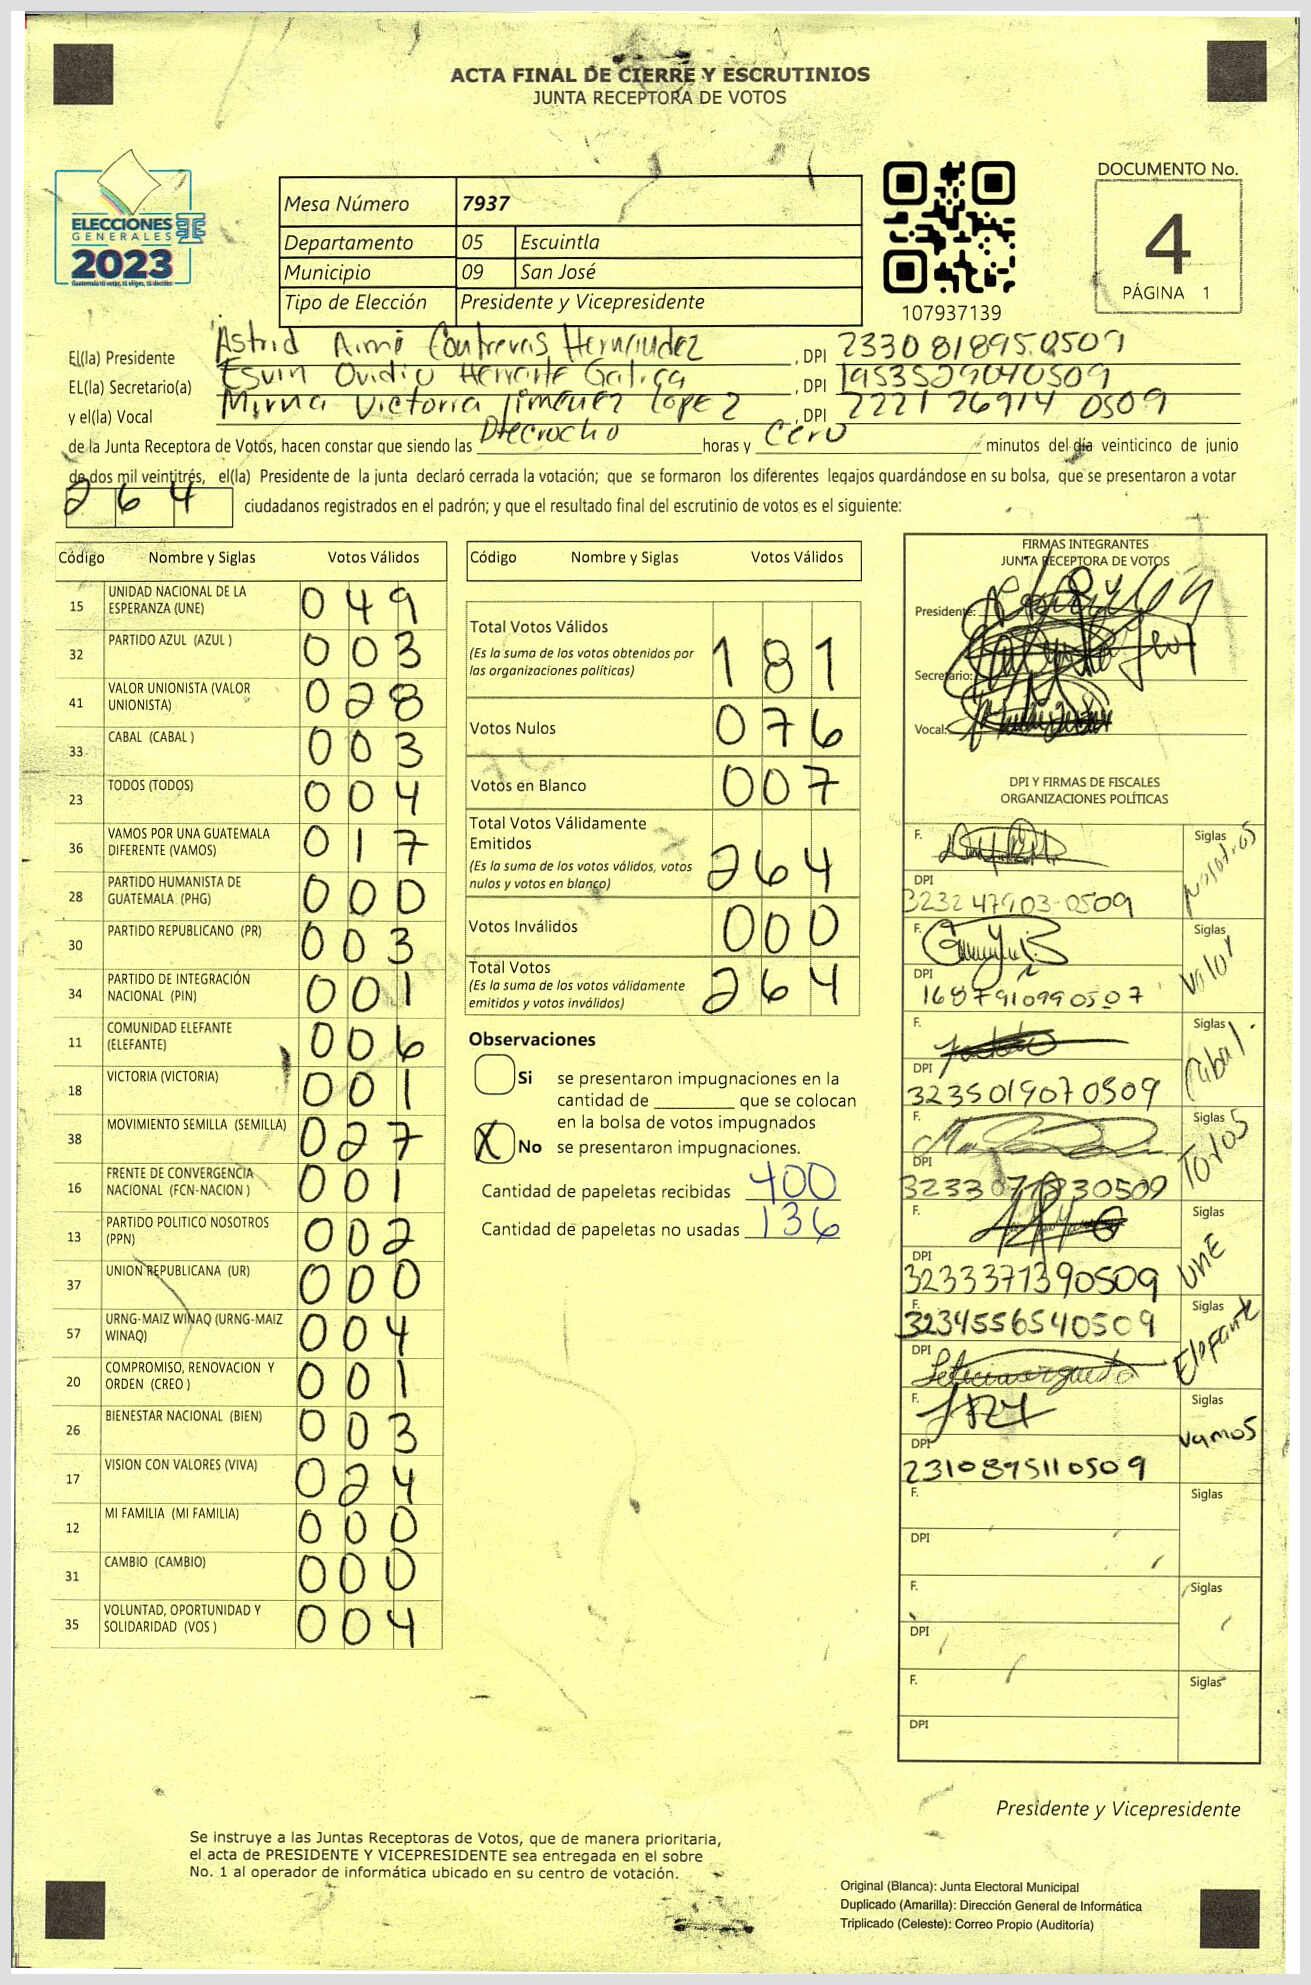 ACTA FINAL DE CIERRE Y ESCRUTINIOS
JUNTA RECEPTORA DE VOTOS
ELECCIONES
GENERALES
2023
Guatemala tú votar, tú eliges, tú decides
Mesa Número 7937
Departamento 05 Escuintla
Municipio 09 San José
Tipo de Elección Presidente y Vicepresidente
107937139
DOCUMENTO No.
4
PÁGINA 1
El(la) Presidente Astrid Aimé Contreras Hernández, DPI 2330818950509
EL(la) Secretario(a) Esvin Ovidio Herrarte Galicia, DPI 1953529040509
y el(la) Vocal Mirna Victoria Jiménez López, DPI 2221269140509
de la Junta Receptora de Votos, hacen constar que siendo las Diecrocho horas y Cero minutos del día veinticinco de junio
de dos mil veintitrés, el(la) Presidente de la junta declaró cerrada la votación; que se formaron los diferentes legajos quardándose en su bolsa, que se presentaron a votar
264 ciudadanos registrados en el padrón; y que el resultado final del escrutinio de votos es el siguiente:
Código Nombre y Siglas Votos Válidos
15 UNIDAD NACIONAL DE LA ESPERANZA (UNE) 049
32 PARTIDO AZUL (AZUL ) 003
41 VALOR UNIONISTA (VALOR UNIONISTA) 028
33 CABAL (CABAL ) 003
23 TODOS (TODOS) 004
36 VAMOS POR UNA GUATEMALA DIFERENTE (VAMOS) 017
28 PARTIDO HUMANISTA DE GUATEMALA (PHG) 000
30 PARTIDO REPUBLICANO (PR) 003
34 PARTIDO DE INTEGRACIÓN NACIONAL (PIN) 001
11 COMUNIDAD ELEFANTE (ELEFANTE) 006
18 VICTORIA (VICTORIA) 001
38 MOVIMIENTO SEMILLA (SEMILLA) 027
16 FRENTE DE CONVERGENCIA NACIONAL (FCN-NACION ) 001
13 PARTIDO POLITICO NOSOTROS (PPN) 002
37 UNION REPUBLICANA (UR) 000
57 URNG-MAIZ WINAQ (URNG-MAIZ WINAQ) 004
20 COMPROMISO, RENOVACION Y ORDEN (CREO ) 001
26 BIENESTAR NACIONAL (BIEN) 003
17 VISION CON VALORES (VIVA) 024
12 MI FAMILIA (MI FAMILIA) 000
31 CAMBIO (CAMBIO) 000
35 VOLUNTAD, OPORTUNIDAD Y SOLIDARIDAD (VOS ) 004
Código Nombre y Siglas Votos Válidos
Total Votos Válidos 181
(Es la suma de los votos obtenidos por
las organizaciones políticas)
Votos Nulos 076
Votos en Blanco 007
Total Votos Válidamente
Emitidos 264
(Es la suma de los votos válidos, votos
nulos y votos en blanco)
Votos Inválidos 000
Total Votos 264
(Es la suma de los votos válidamente
emitidos y votos inválidos)
Observaciones
Si se presentaron impugnaciones en la
cantidad de ________ que se colocan
en la bolsa de votos impugnados
X No se presentaron impugnaciones.
Cantidad de papeletas recibidas 400
Cantidad de papeletas no usadas 136
FIRMAS INTEGRANTES
JUNTA RECEPTORA DE VOTOS
Presidente:
Secretario:
Vocal:
DPI Y FIRMAS DE FISCALES
ORGANIZACIONES POLÍTICAS
F. Siglas Nosotros
DPI 3232479030509
F. Siglas Valor
DPI 1687910990507
F. Siglas Cabal.
DPI 3235019070509
F. Siglas Todos
DPI
F. Siglas UNE
DPI 3233371390509
F. 3234556540509 Siglas Elefante
DPI
F. Siglas vamos
DPI 2310895110509
F. Siglas
DPI
F. Siglas
DPI
F. Siglas
DPI
Presidente y Vicepresidente
Se instruye a las Juntas Receptoras de Votos, que de manera prioritaria,
el acta de PRESIDENTE Y VICEPRESIDENTE sea entregada en el sobre
No. 1 al operador de informática ubicado en su centro de votación.
Original (Blanca): Junta Electoral Municipal
Duplicado (Amarilla): Dirección General de Informática
Triplicado (Celeste): Correo Propio (Auditoría)